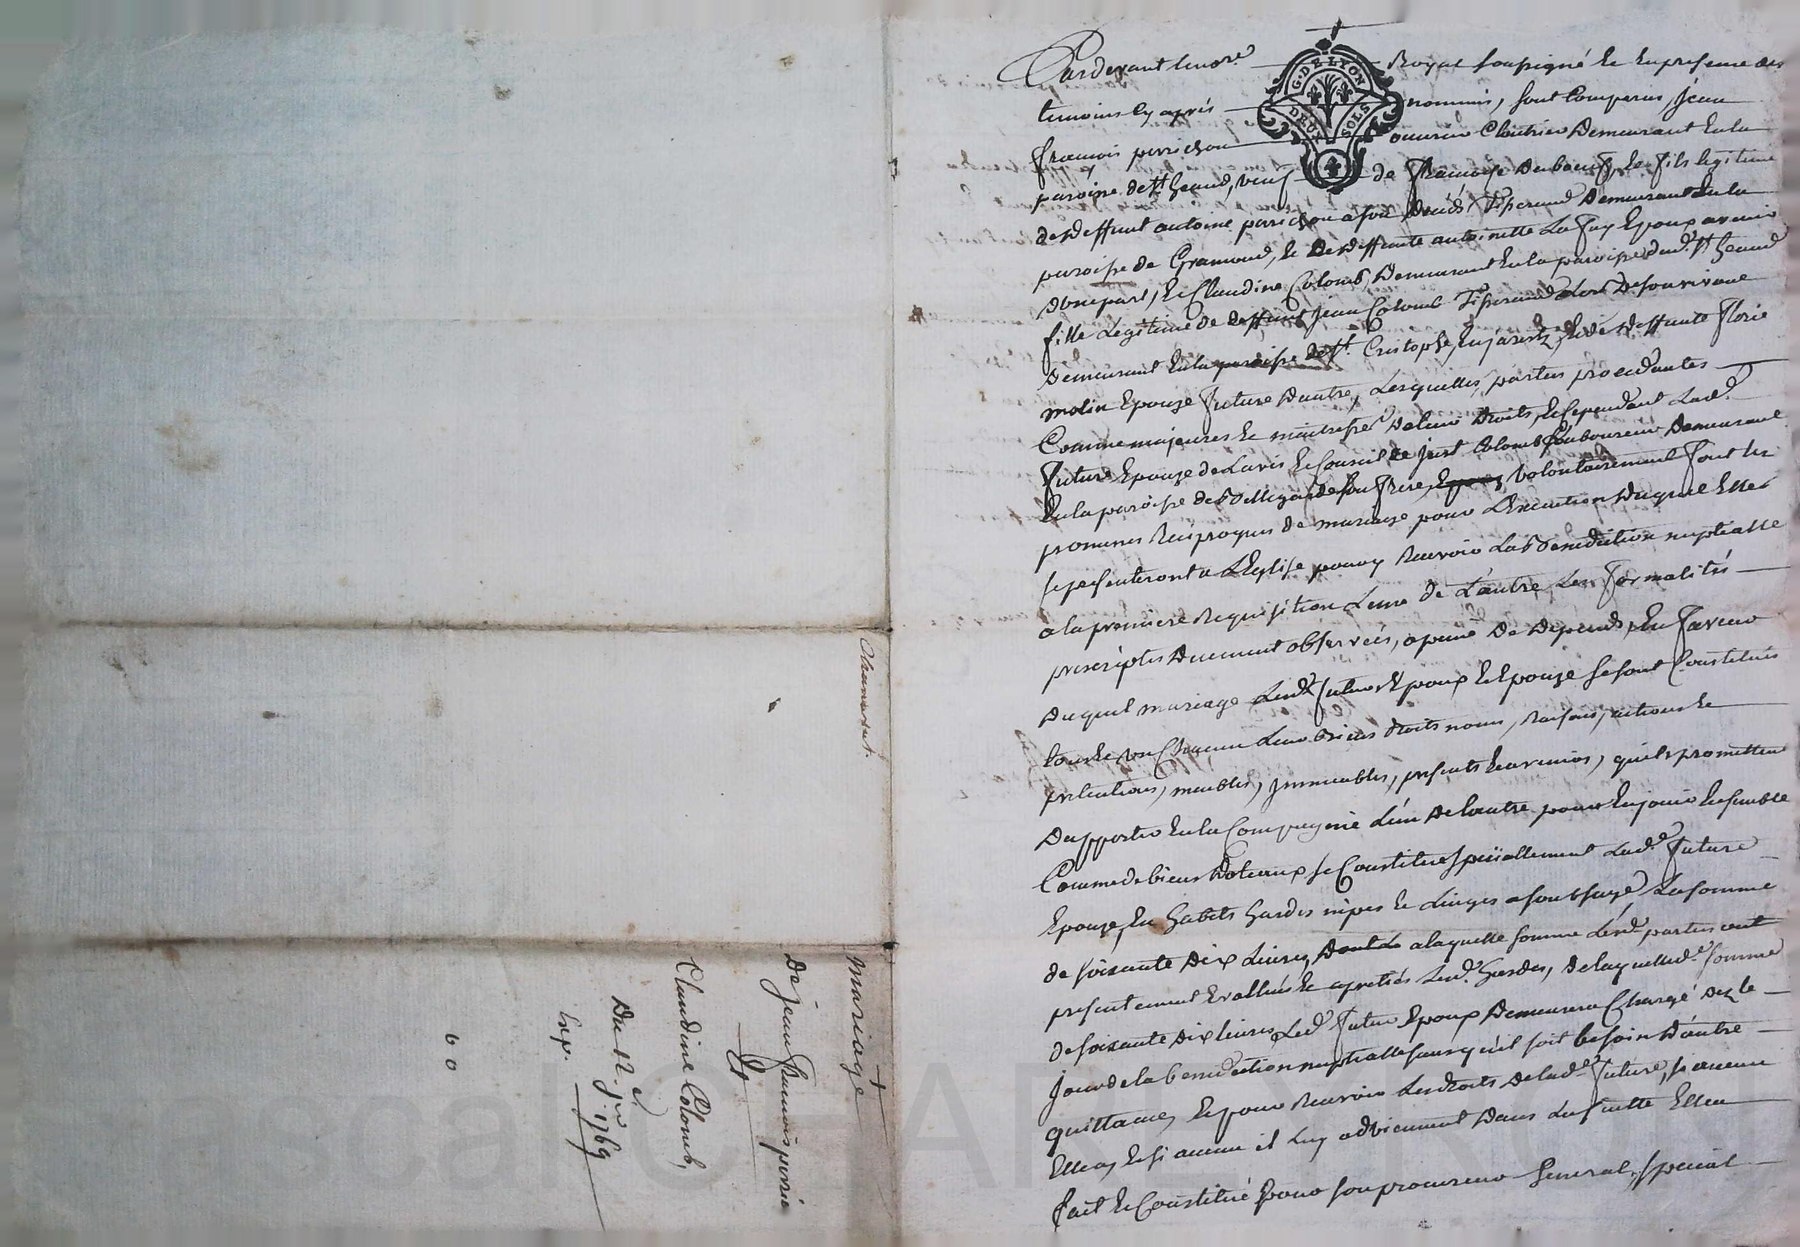 Pardevant le nore. Royal soussigné Et En presence des
temoins Cy aprés nommés, sont Comparus Jean
François perrichon ouvrier Cloutrier Demeurant En la
paroisse de st. heand, veuf de Françoise Duboeuf, Et fils legitime
de deffunt antoine perrichon a son Decéds Tisserand Demeurant En la
paroisse de Grammond, Et de deffunte antoinette La Fay Epoux avenir
d'une part, Et Claudine Colomb, Demeurant En la paroisse dud. st. heand
fille Legitime de deffunt Jean Colomb Tisserand Lors de son vivant
Demeurant En la paroisse de st. Cristophe, En jarest, Et de deffunte Florie
molin Epouze future d'autre, Lesquelles parties procedantes
Comme majeures Et maitresses de leurs Droits, Et Cependant Lad.
Future Epouze de L'avis Et Conseil de just Colomb Laboureur Demeurant
En la paroisse de son frere, Volontairement font les
promesses Reciproques de mariage pour L'Execution duquel Elles
se presenteront a L'Eglise pour y Recevoir La Benediction nuptialle
a la premiere Requisition L'une de L'autre Les formalités
prescriptes Duement observées, a peine De Depends, En faveur
Duquel mariage Lesd. futurs Epoux Et Epouze se sont Constitués
tous Et un Chacun Leurs Biens droits noms, Raisons, actions Et
pretentions, meubles, Immeubles, presents Et avenirs, qu'ils promettent
D'apporter En la Compagnie L'un De L'autre pour En jouir Ensemble
Comme de biens Dotaux se Constitue specialement Lad. Future
Epouze, En habits hardes nipes Et Linges a son usage, La somme
de soixante Dix Livres, a laquelle somme Lesd. parties ont
presentement Evallués Et apretiés Lesd. hardes, De laquelle d. somme
de soixante Dix livres Led. futur Epoux Demeurera Chargé Dez le
jour de la benediction nuptialle sans qu'il soit besoin D'autre
quittance, Et pour Recevoir Les droits De lad. Future, si aucun
Elle a, Et si aucun il Luy adviennent Dans La suitte Elle a
fait Et Constitué pour son procureur General, special
G. DE LYON
DEUX SOLS
Chamarut.
Mariage
De jean François perrichon
Et
Claudine Colomb,
Du 12. jer. 1769
Exp.
60
CHAP